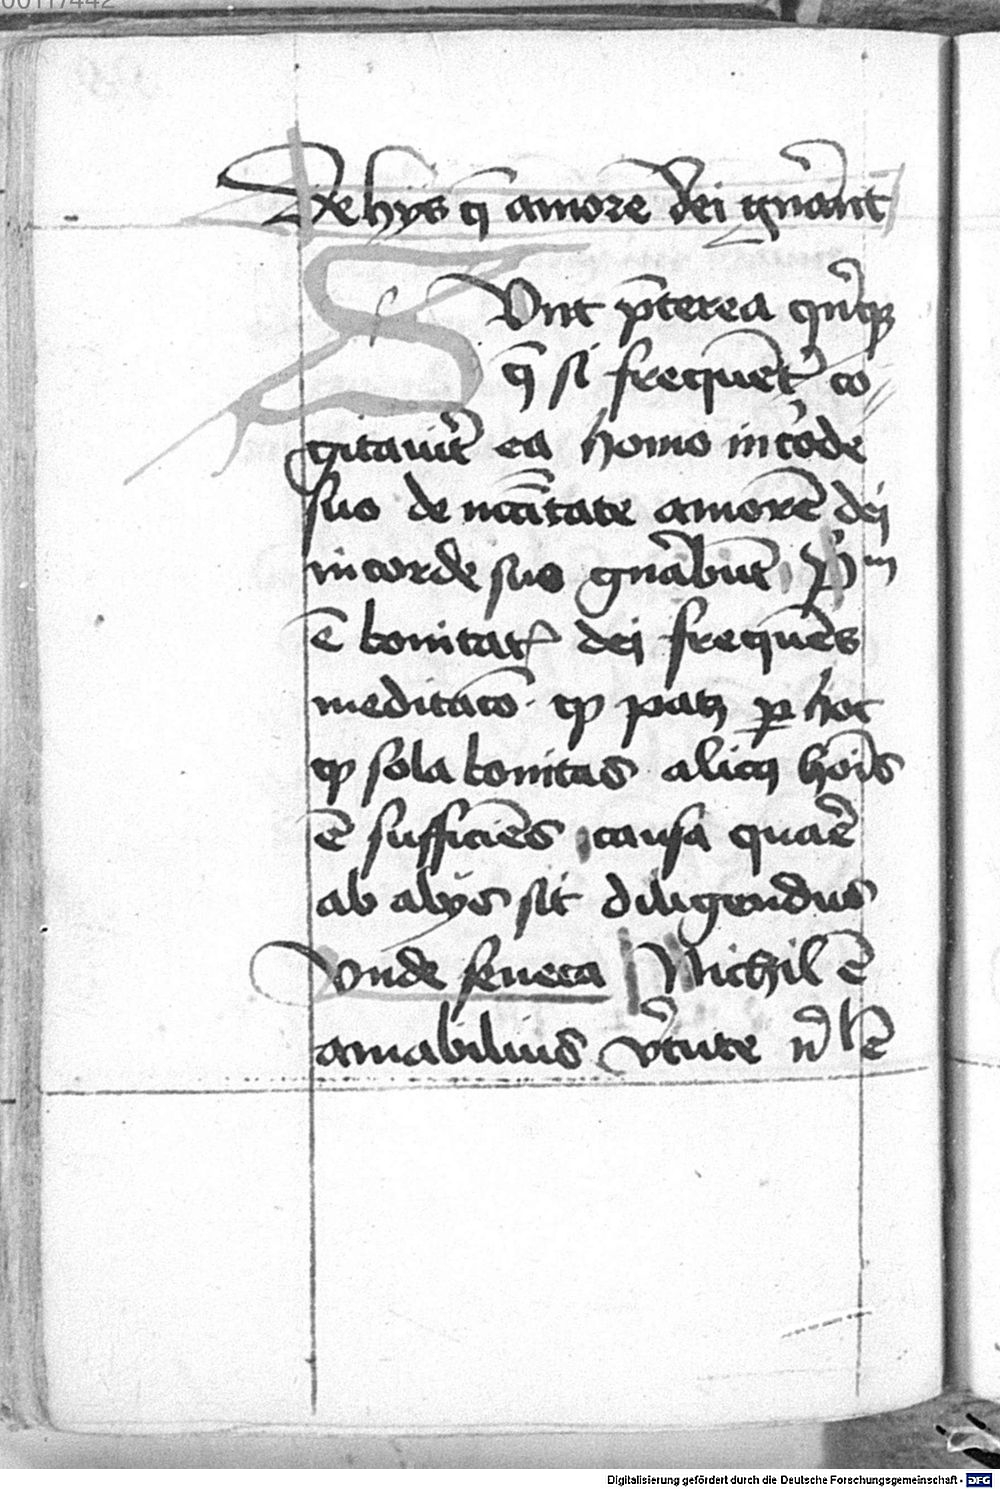 De hys q̄ amorē dei gn̄ant
SVnt p̄terea quīqȝ
q̄ si frequēt̾ co
gitau̾it ea homo in cōde
suo de nc̄c̄itate amorē dei
in corde suo gn̄abūt Pͥm
ē bonitatꝭ dei frequēs
meditac̄o qꝫ patꝫ ꝑ hoc
qꝫ sola bonitas alicꝰ hoīs
ē sufficiēs causa quaē
ab alijs sit diligendus
Vnde seneca Nichil ē
amabilius v̾tute
Digitalisierung gefördert durch die Deutsche Forschungsgemeinschaft - DFG